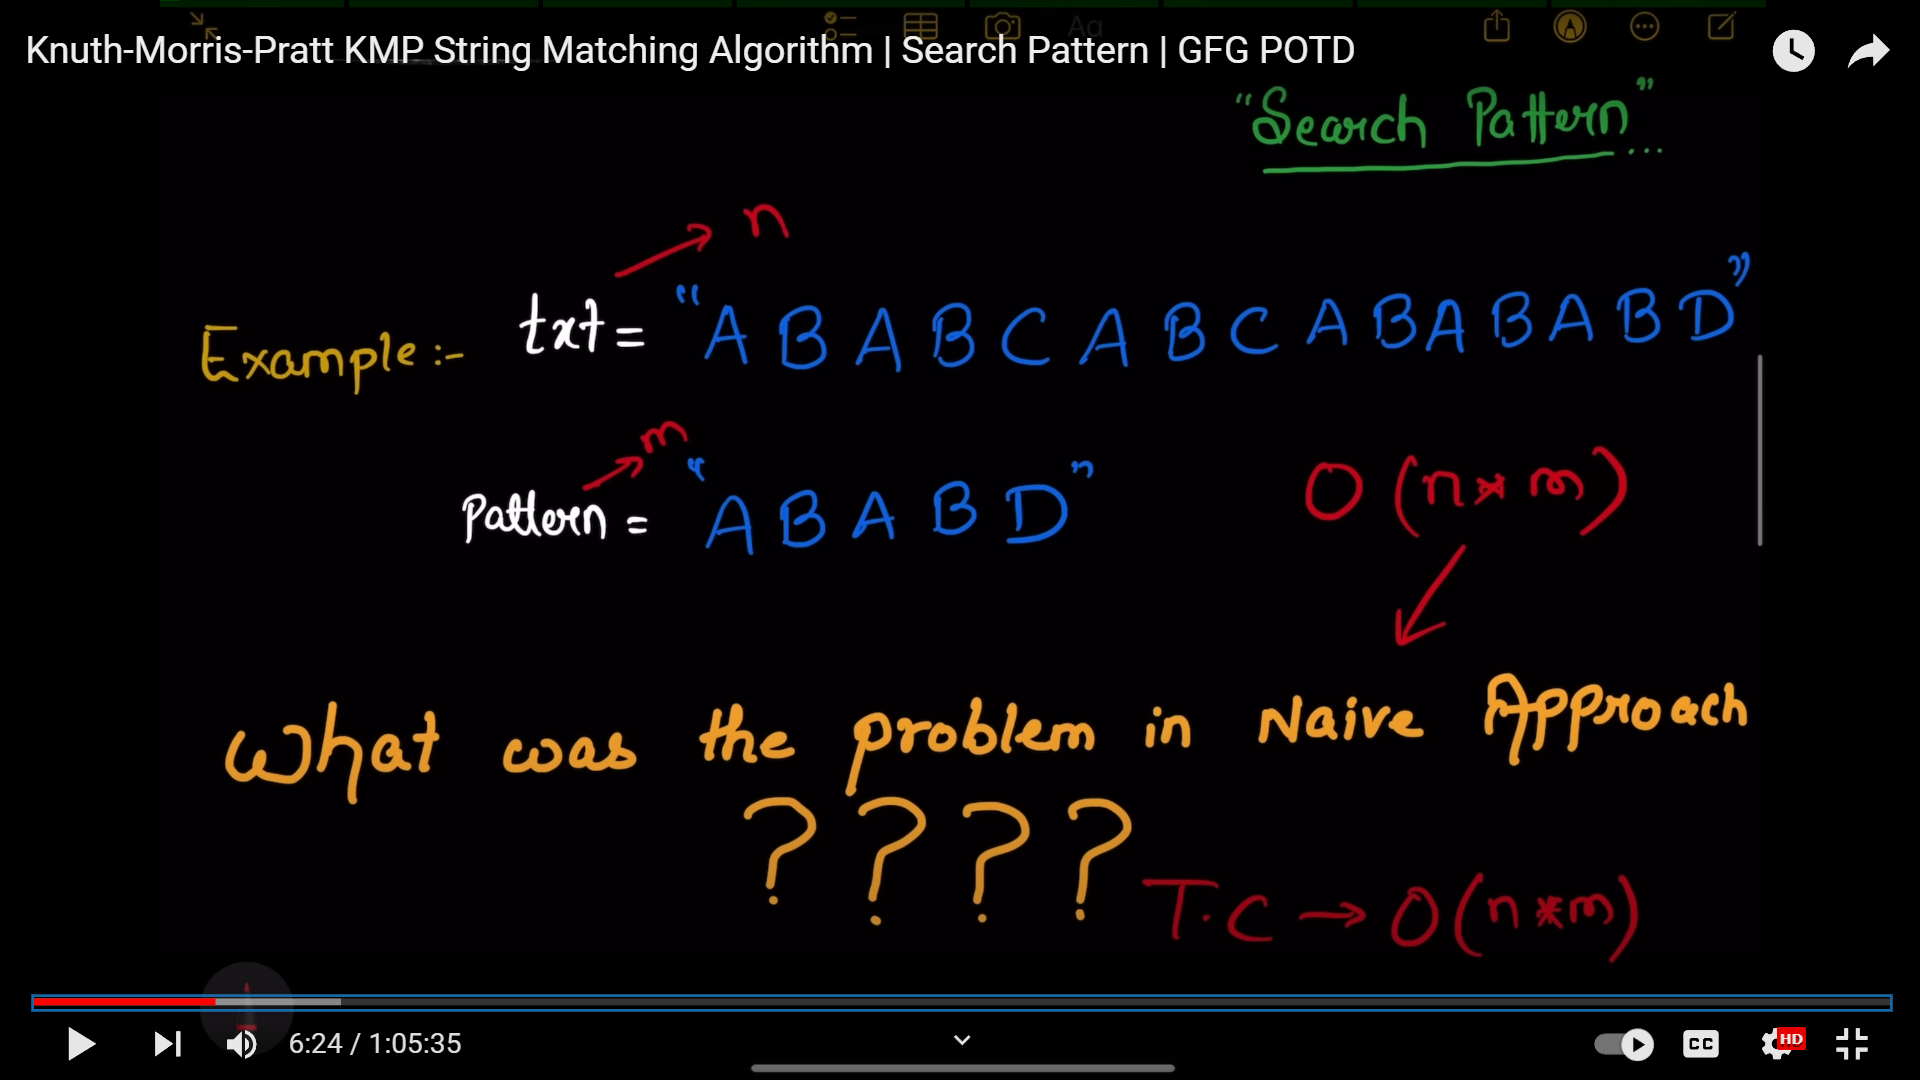 Aa
Knuth-Morris-Pratt KMP String Matching Algorithm | Search Pattern | GFG POTD
"Search Pattern"...
n
Example :- txt = "ABABCABCABABABD"
m
Pattern = "ABABD"
O(n*m)
What was the problem in Naive Approach
? ? ? ?
T.C → O(n*m)
6:24 / 1:05:35
CC
HD